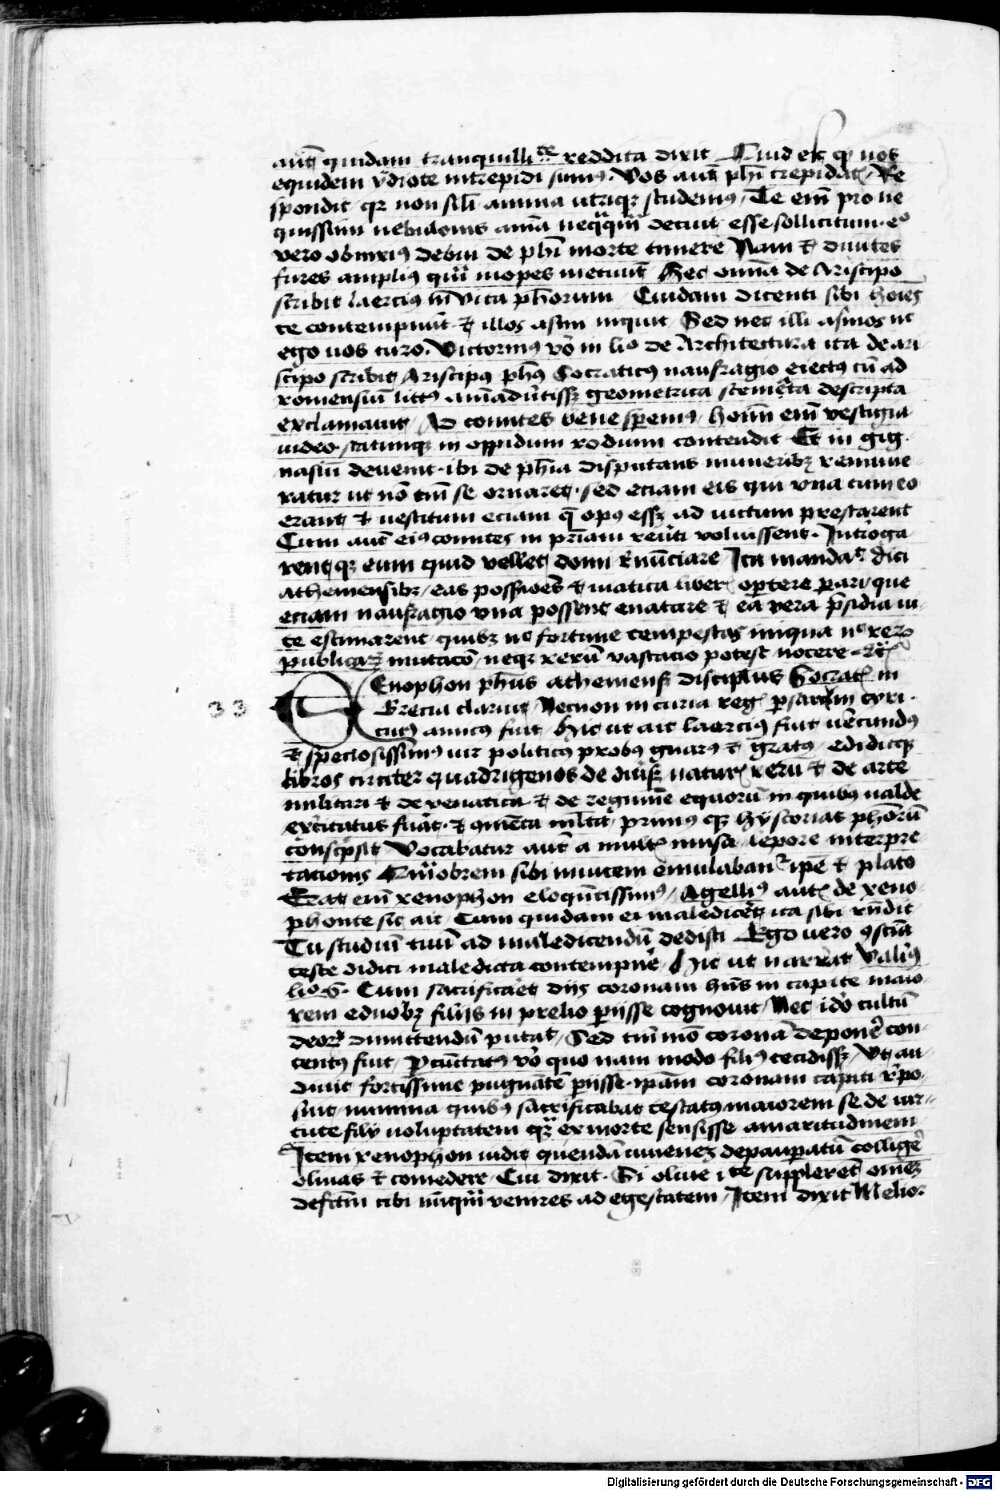 aut̄ quidam tranquillite reddita dixit Quid est q vos
equidem ydiote intrepidi sumus. Vos aut̄ phi trepidatis Re
spondit qr non sili anima utrique studemus / Te em̄ pro ne
quissimi nebulonis aīa neqq̄m decuit esse sollicitum. eo
vero obnixius debui de phi morte timere Nam et divites
fures amplius qm̄ inopes metuūt Hec omīa de Aristipo
scribit laercius in vita ph̄orum / Cuidam dicenti sibi hoīes
te contempnūt et illos asini inquit / Sed nec illi asinos nec
ego vos curo. Victorinus vo in lio de Architectura ita de ari
stipo scribit Aristipus phus Socraticus naufragio eiectus cū ad
rodiensiū littus aīmadūtisset geometrica scemata descripta
exclamavit / Ad comites bene speremus / hoīm em̄ vestigia
video. statimque in oppidum rodium contendit Et in gig
nasiū devenit. ibi de phia disputans muneribus remune
ratur ut nō tm̄ se ornaret. sed etiam eis qui una cum eo
erant et vestitum etiam q̄ opus esset ad victum prestarent
Cum aut̄ eius comites in priam revti voluissent. Introga
rentque eum quid vellet domi rn̄ūciare Ita mandat dici
atheniensibus / eas possiōes et viatica liberis oportere parari que
etiam naufragio una possent enatare et ea vera psidia vi
te estimarent quibus nec fortune tempestas iniqua nec rerum
publicarum mutatio / neque rerū vastatio potest nocere
Enophon phus atheniensis discipulus Socratis in
Grecia claruit Necnon in curia regis psarum Cyri
cuius amicus fuit / Hic ut ait laercius fuit verecundus
et speciosissimus vir politicus probus gnarus et gratus / ediditque
libros circiter quadrigenos de diuisis naturis rerū et de arte
militari et de venatica et de regimine equorū in quibus valde
exercitatus fuit. et primus que hystorias phorū
conscripsit Vocabatur aut̄ a multis musa / lepore interpre
tationis Quobrem sibi invicem emulabantur ipe et plato
Erat em̄ xenophon eloquētissimus / Agellius aut̄ de xeno
phonte sic ait / Cum quidam ei malediceret ita sibi rn̄dit
Tu studiū tuū ad maledicendū dedisti Ego vero consciā
teste didici maledicta contempnere Hic ut narrat Valius
lio 5. Cum sacrificaret diis coronam hns in capite maio
rem eduobus filijs in prelio perijsse cognovit / Nec ido cultū
deor dimittendū putat / Sed tm̄mō coronā deponere con
tentus fuit / Percūtatus vo quo nam modo filius cecidisset / Ut au
divit fortissime pugnātem perijsse. ipam coronam capiti rpo
suit numina quibus sacrificabat testatus maiorem se de vir
tute filij voluptatem quam ex morte sensisse amaritudinem
Item xenophon vidit quendā iuvenez depauperatū colligere
olivas et comedere / Cui dixit. Si olive ite supplerent omēz
defectum cibi nūquam venires ad egestatem / Item dixit Melior
33
Digitalisierung gefördert durch die Deutsche Forschungsgemeinschaft - DFG